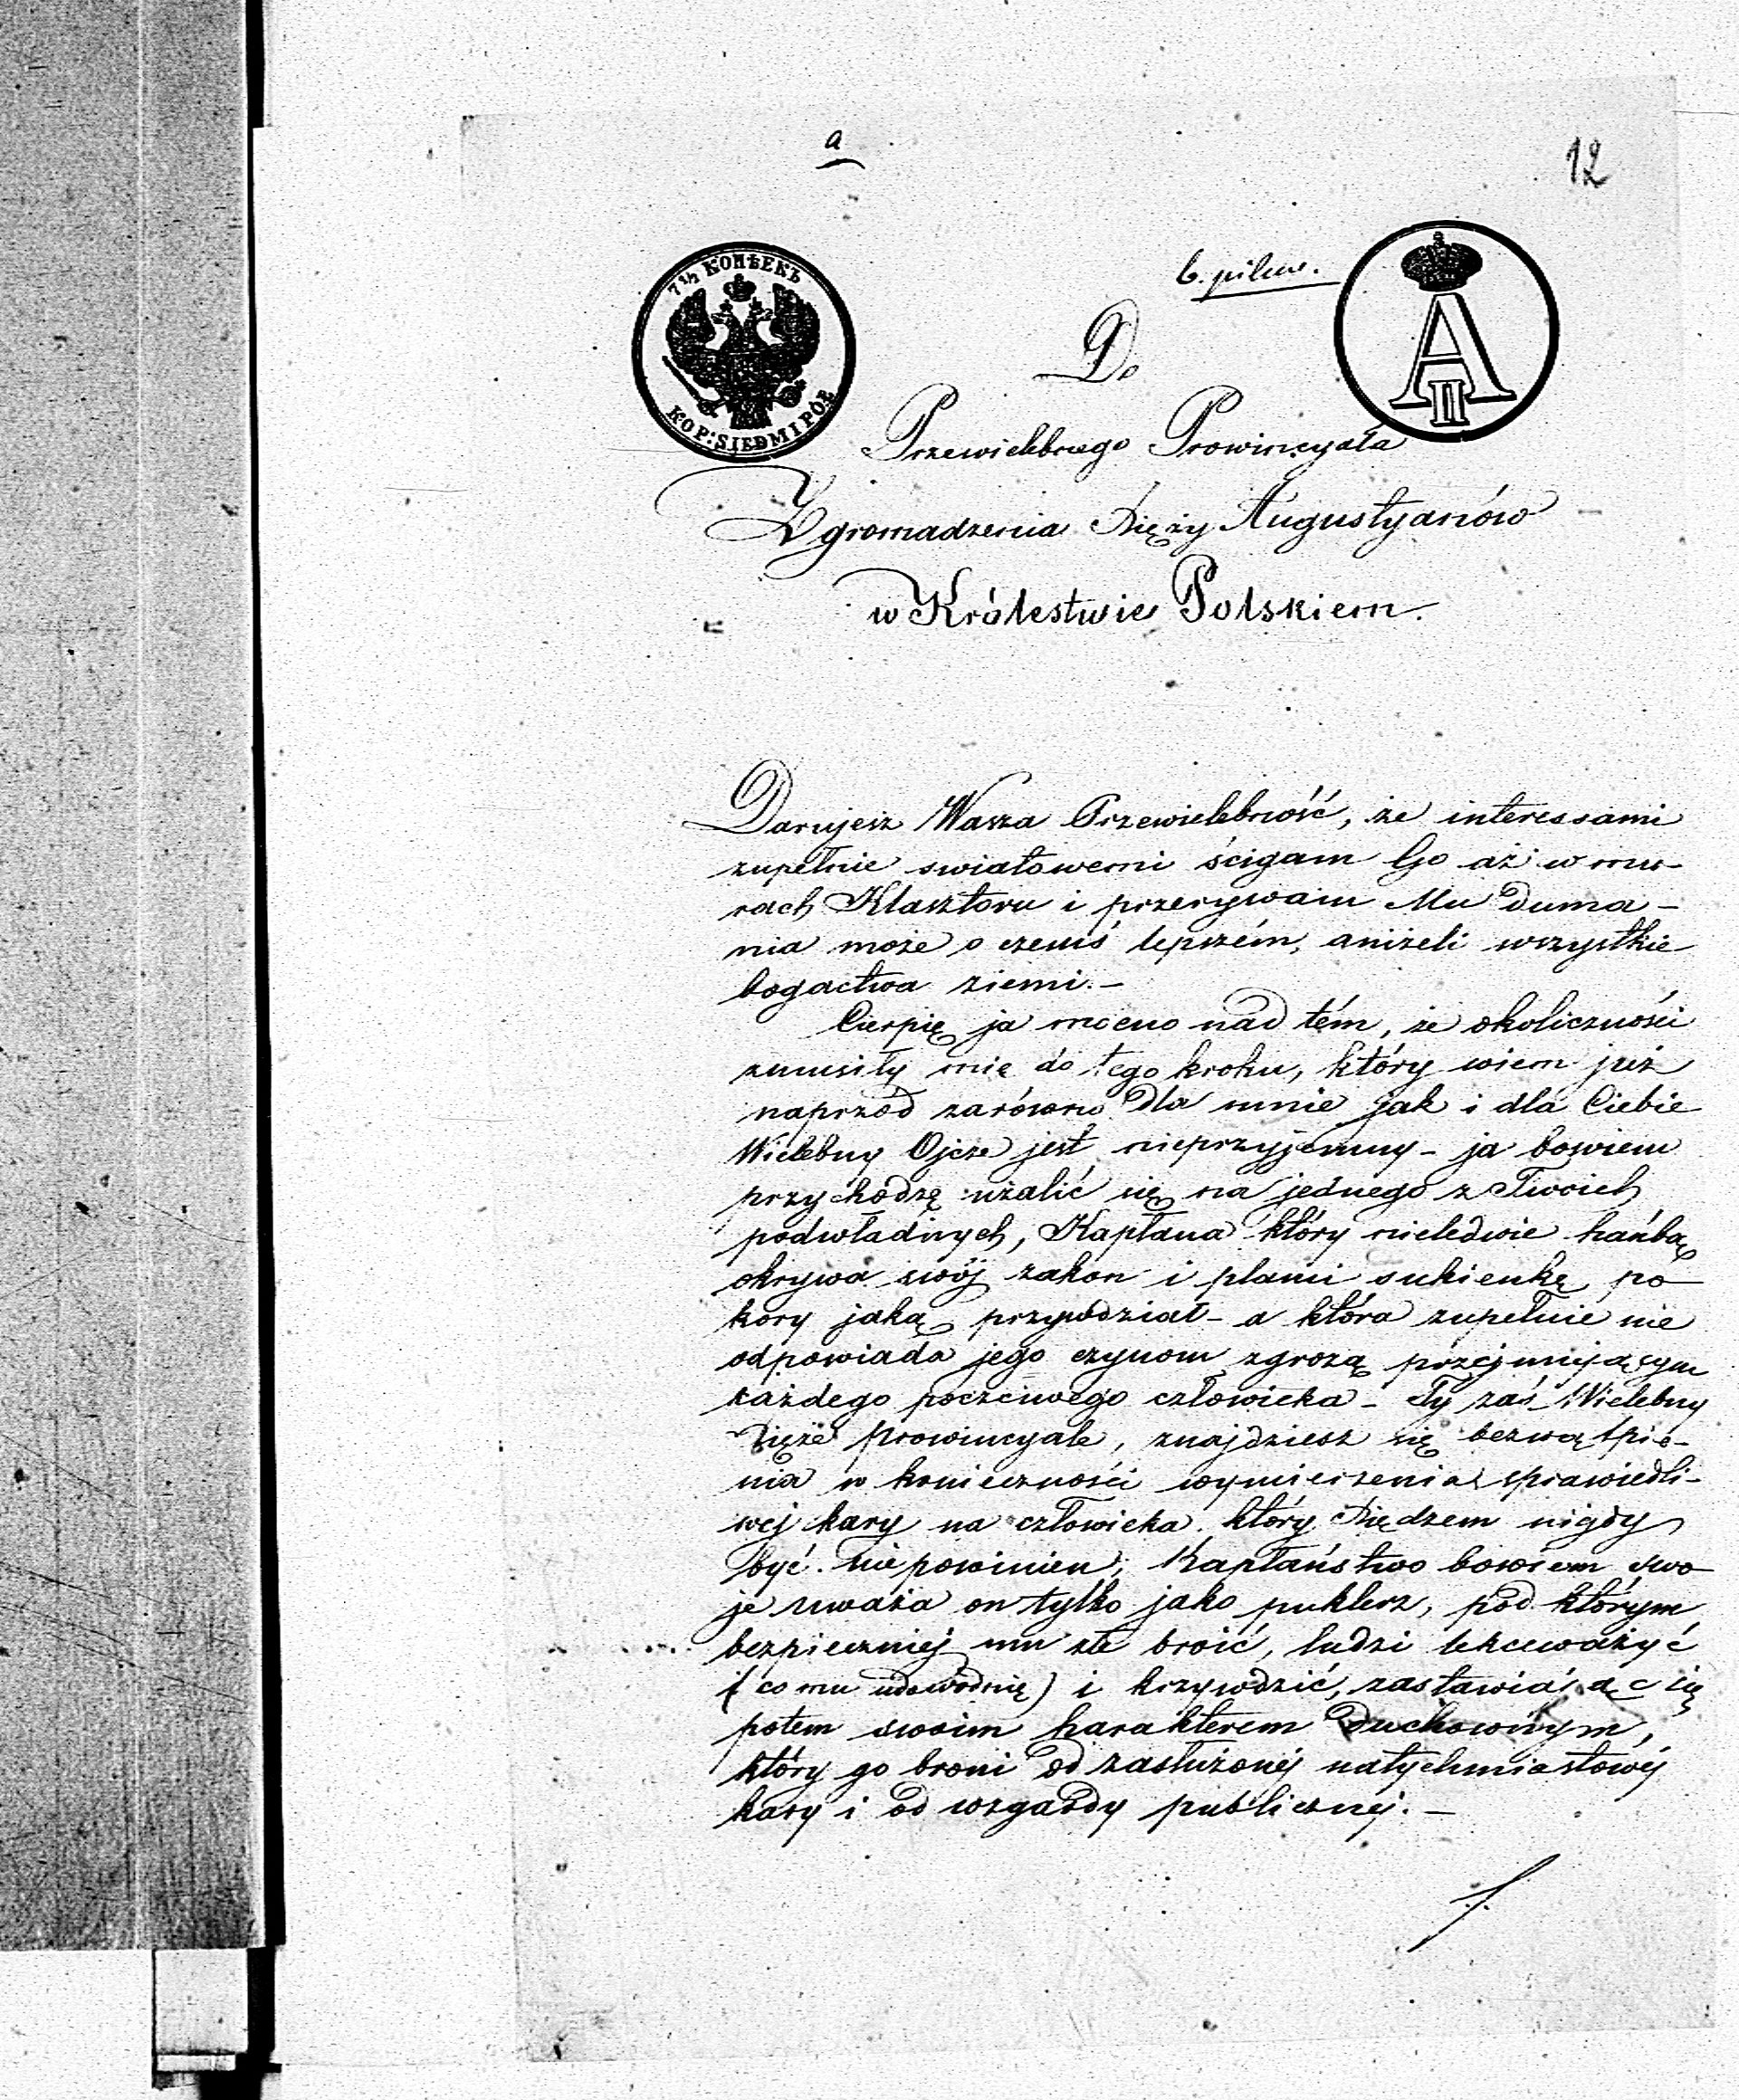 a
12
7 1/2 КОПѢЕКЪ
KOP: SIEDM I PÓŁ
b. pilno.
A II
Do
Przewielebnego Prowincyała
Zgromadzenia Xięży Augustyanów
w Królestwie Polskiem.
Darujesz Wasza Przewielebność, że interessami
zupełnie swiatowemi ścigam Go aż w mu-
rach Klasztoru i przerywam Mu duma-
nia może o czemś lepszém, aniżeli wszystkie
bogactwa ziemi.-
Cierpię ja mocno nad tém, że okoliczności
zmusiły mię do tego kroku, który wiem już
naprzód zarówno dla mnie jak i dla Ciebie
Wielebny Ojcze jest nieprzyjemny - ja bowiem
przychodzę użalić się na jednego z Twoich
podwładnych, Kapłana który nieledwie hańbą
okrywa swój zakon i plami sukienkę po-
kory jaką przywdział - a która zupełnie nie
odpowiada jego czynom zgrozą przejmującym
każdego poczciwego człowieka - Ty zaś Wielebny
Xięże Prowincyale, znajdziesz się bezwątpie-
nia w konieczności wymierzenia sprawiedli-
wej kary na człowieka który Xiędzem nigdy
być niepowinien; Kapłaństwo bowiem swo
je uważa on tylko jako puklerz, pod którym
bezpieczniej mu złe broić, ludzi lekceważyć
(co mu udowodnię) i krzywdzić, zastawiając się
potem swoim harakterem Duchownym,
który go broni od zasłużonéj natychmiastowéj
kary i od wzgardy publicznéj. -